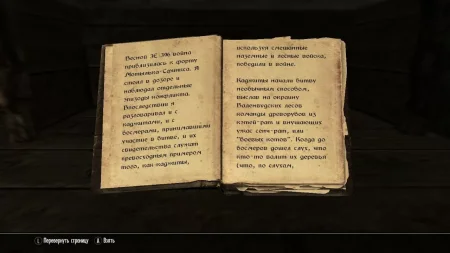 Весной 3Е 396 война
приблизилась к форту
Могильно-Сфинкса. Я
стоял в дозоре и
наблюдал отдельные
эпизоды конфликта.
Впоследствии я
разговаривал и с
каджитами, и с
босмерами, принимавшими
участие в битве, и их
свидетельства служат
превосходным примером
того, как каджиты,
используя смешанные
наземные и лесные войска,
победили в войне.
Каджиты начали битву
необычным способом,
выслав на окраину
Валенвудских лесов
команды дроворубов из
кэтей-рат и внушающих
ужас сенч-рат, или
"боевых котов". Когда до
босмеров дошел слух, что
кто-то валит их деревья
(что, по слухам,
Перевернуть страницу
A Взять